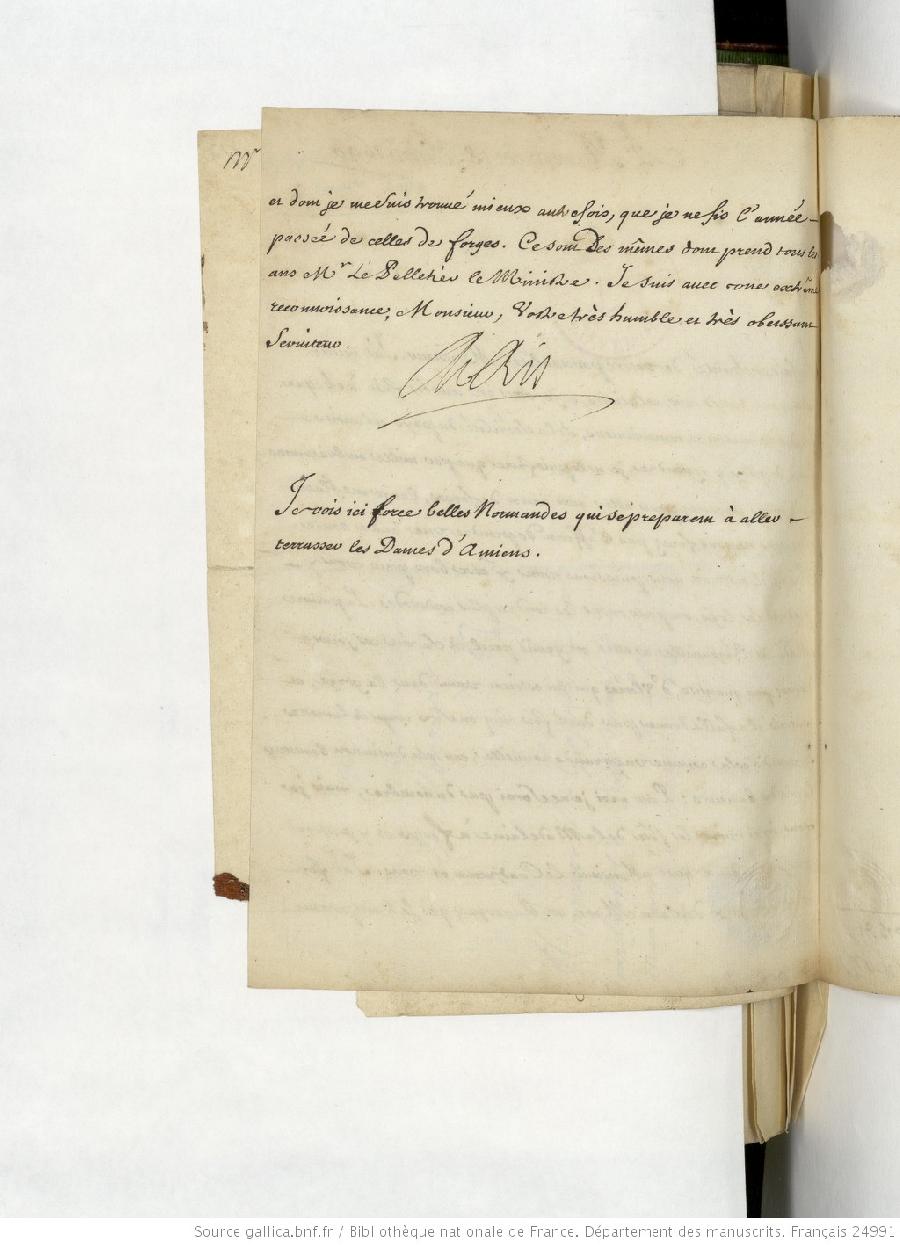 Mr
et dont je me suis trouvé mieux autrefois, que je ne fis l'année
passée de celles de forges. Ce sont des mêmes dont prend tous les
ans Mr. Le Pelletier le Ministre. Je suis avec toute
reconnoissance, Monsieur, Votre très humble et très obeissant
Serviteur
Je vois ici force belles Normandes qui se preparent à aller
terrasser les Dames d'Amiens.
Source gallica.bnf.fr / Bibliothèque nationale de France. Département des manuscrits. Français 24991